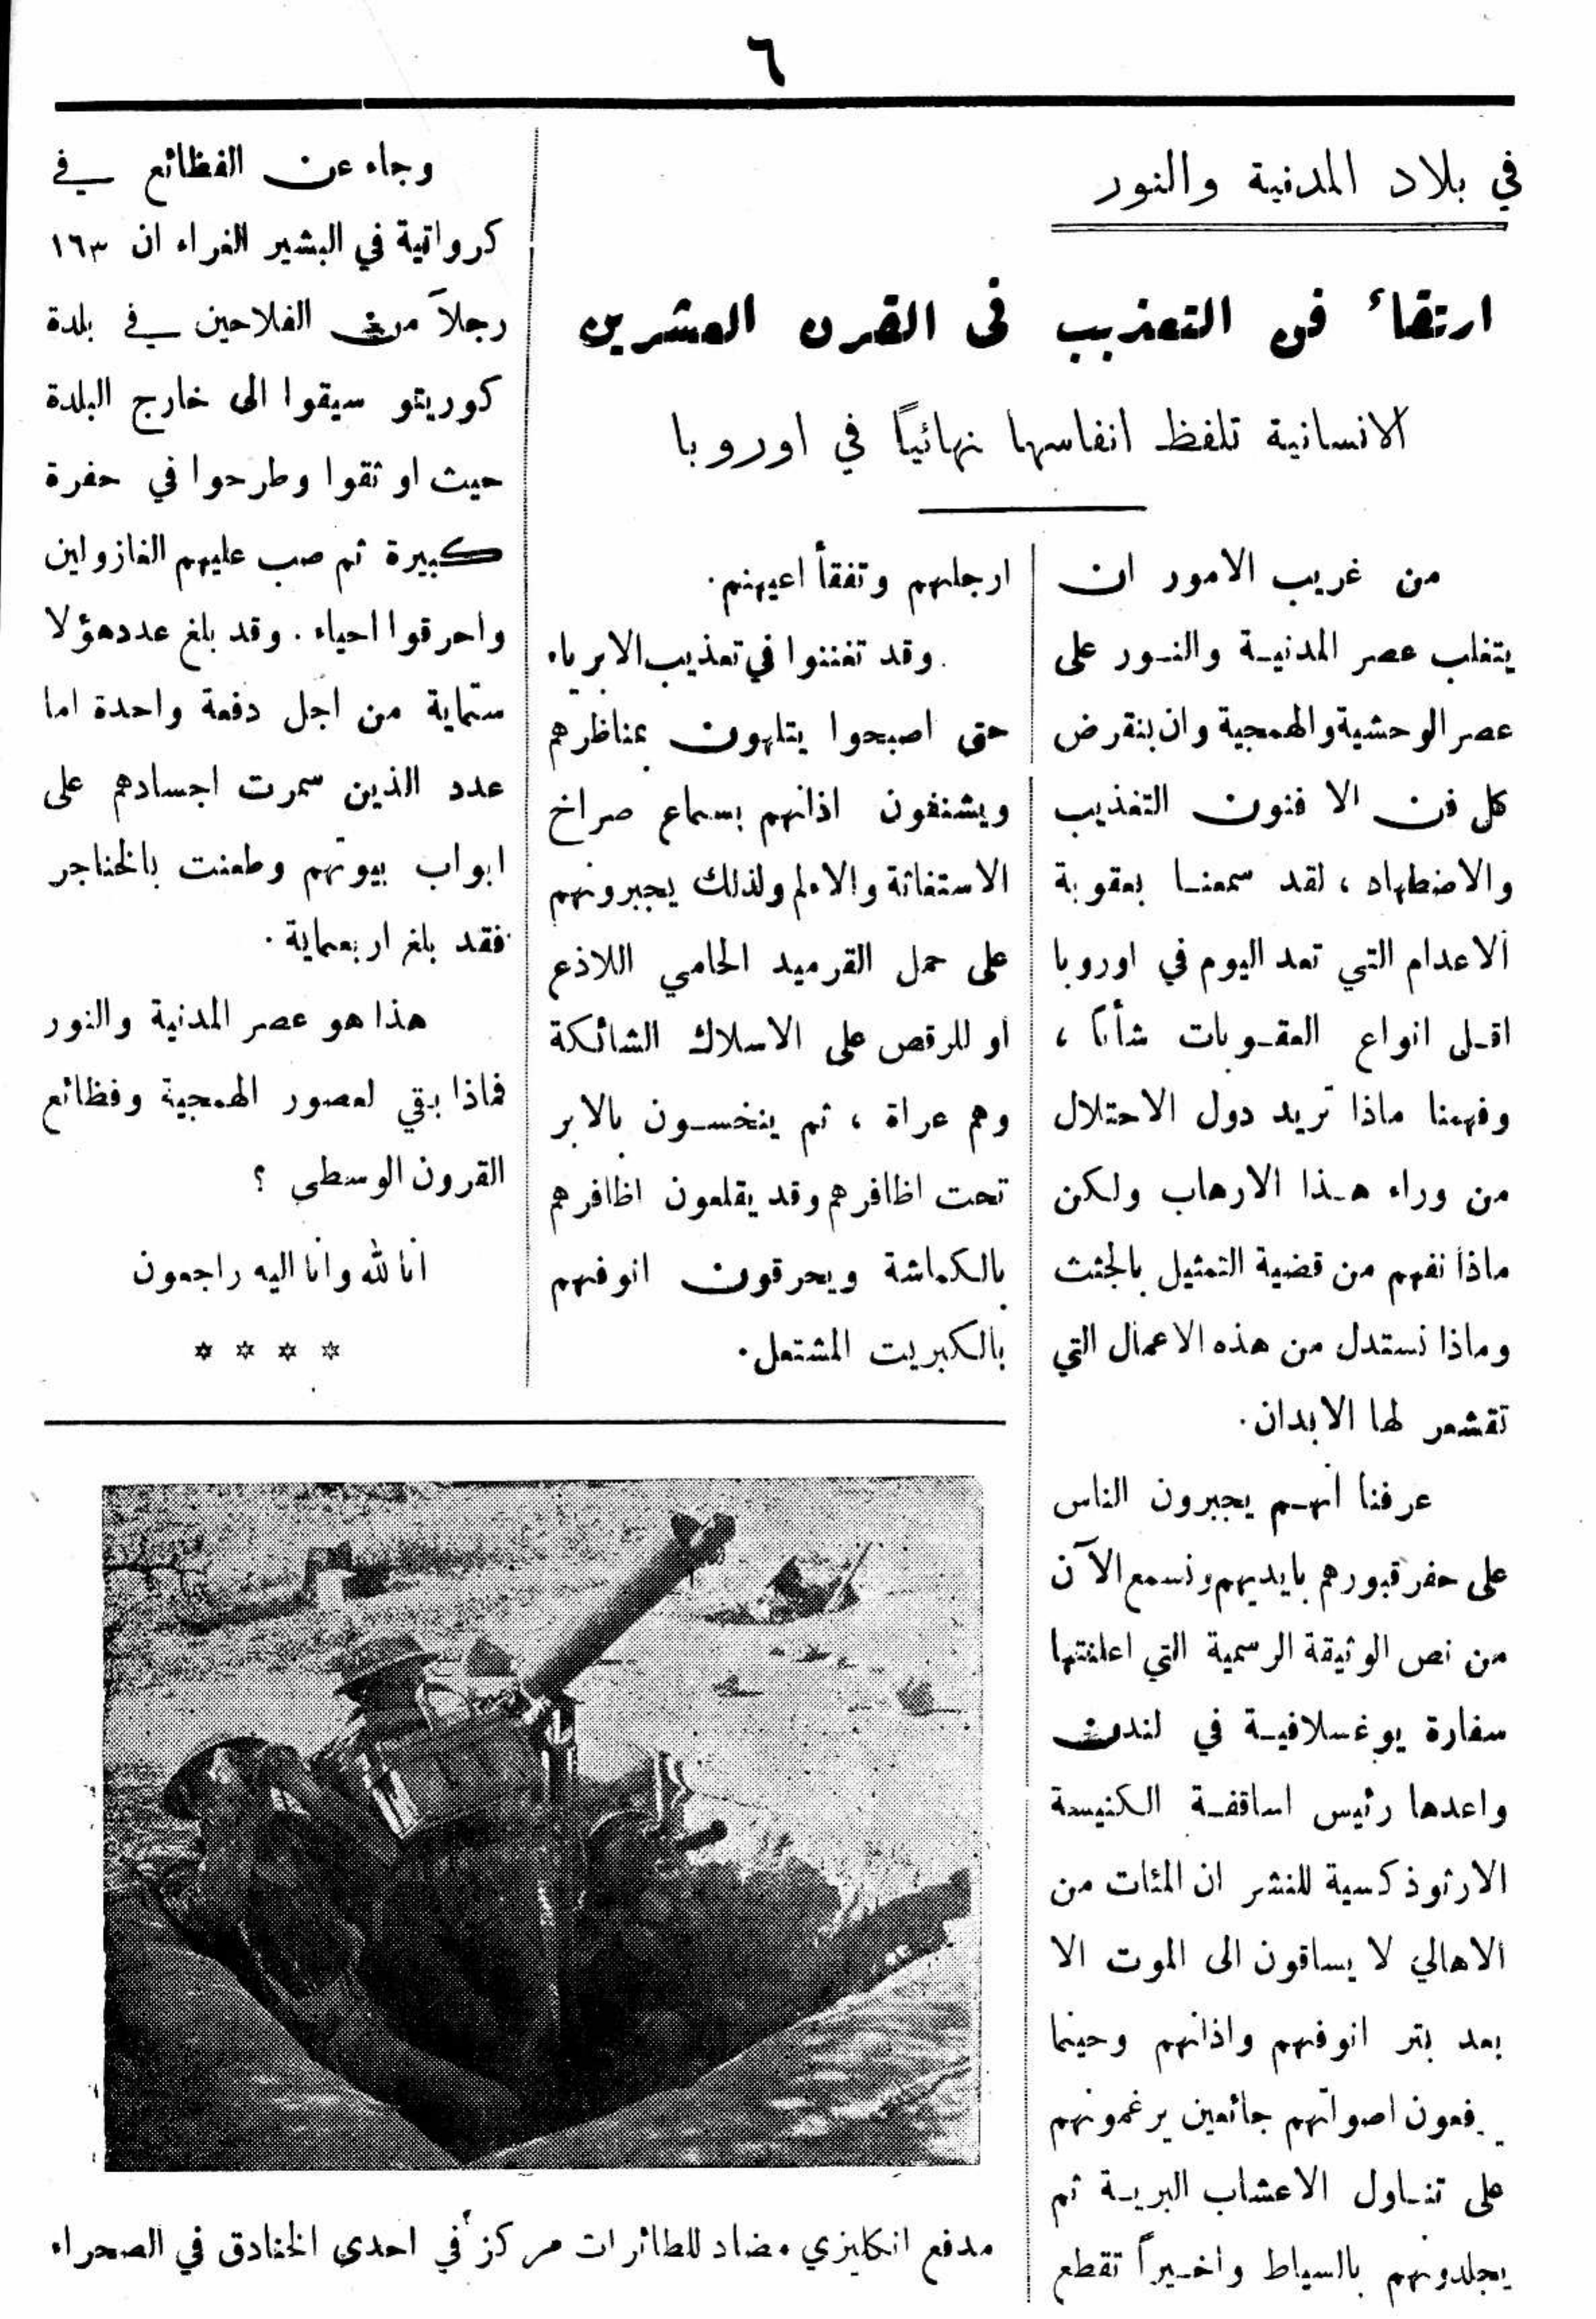 ٦
في بلاد المدنية والنور
ارتقاء فن التعذيب فى القرن العشرين
الانسانية تلفظ انفاسها نهائياً في اوروبا
من غريب الامور ان
يتغلب عصر المدنيـة والنـور على
عصر الوحشية والهمجية وان ينقرض
كل فن الا فنون التعذيب
والاضطهاد ، لقد سمعنـا بعقوبة
الاعدام التي تعد اليوم في اوروبا
اقـل انواع العقـوبات شأناً ،
وفهمنا ماذا تريد دول الاحتلال
من وراء هـذا الارهاب ولكن
ماذا نفهم من قضية التمثيل بالجثث
وماذا نستدل من هذه الاعمال التي
تقشعر لها الابدان .
عرفنا انهـم يجبرون الناس
على حفر قبورهم بايديهم ونسمع الآن
من نص الوثيقة الرسمية التي اعلنتها
سفارة يوغسلافيـة في لندن
واعدها رئيس اساقفـة الكنيسة
الارثوذكسية للنشر ان المئات من
الاهالي لا يساقون الى الموت الا
بعد بتر انوفهم واذانهم وحينما
يرفعون اصواتهم جائعين يرغمونهم
على تنـاول الاعشاب البريـة ثم
يجلدونهم بالسياط واخـيراً تقطع
ارجلهم وتفقأ اعينهم .
وقد تفننوا في تعذيب الابرياء
حتى اصبحوا يتلهون بمناظرهم
ويشنفون اذانهم بسماع صراخ
الاستغاثة والالم ولذلك يجبرونهم
على حمل القرميد الحامي اللاذع
او للرقص على الاسلاك الشائكة
وهم عراة ، ثم ينخسـون بالابر
تحت اظافرهم وقد يقلعون اظافرهم
بالكماشة ويحرقون انوفهم
بالكبريت المشتعل .
وجاء عن الفظائع في
كرواتية في البشير الغراء ان ١٦٣
رجلاً من الفلاحين في بلدة
كوريتو سيقوا الى خارج البلدة
حيث اوثقوا وطرحوا في حفرة
كبيرة ثم صب عليهم الغازولين
واحرقوا احياء . وقد بلغ عدد هؤلا
ستماية من اجل دفعة واحدة اما
عدد الذين سمرت اجسادهم على
ابواب بيوتهم وطعنت بالخناجر
فقد بلغ اربعماية .
هذا هو عصر المدنية والنور
فماذا بقي لعصور الهمجية وفظائع
القرون الوسطى ؟
انا لله وانا اليه راجعون
مدفع انكليزي مضاد للطائرات مركز في احدى الخنادق في الصحراء